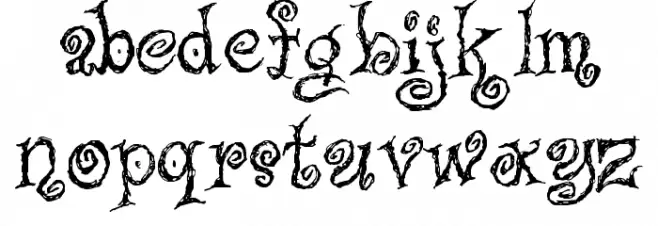 abcdefghijk lm
nopqrstuvwxyz